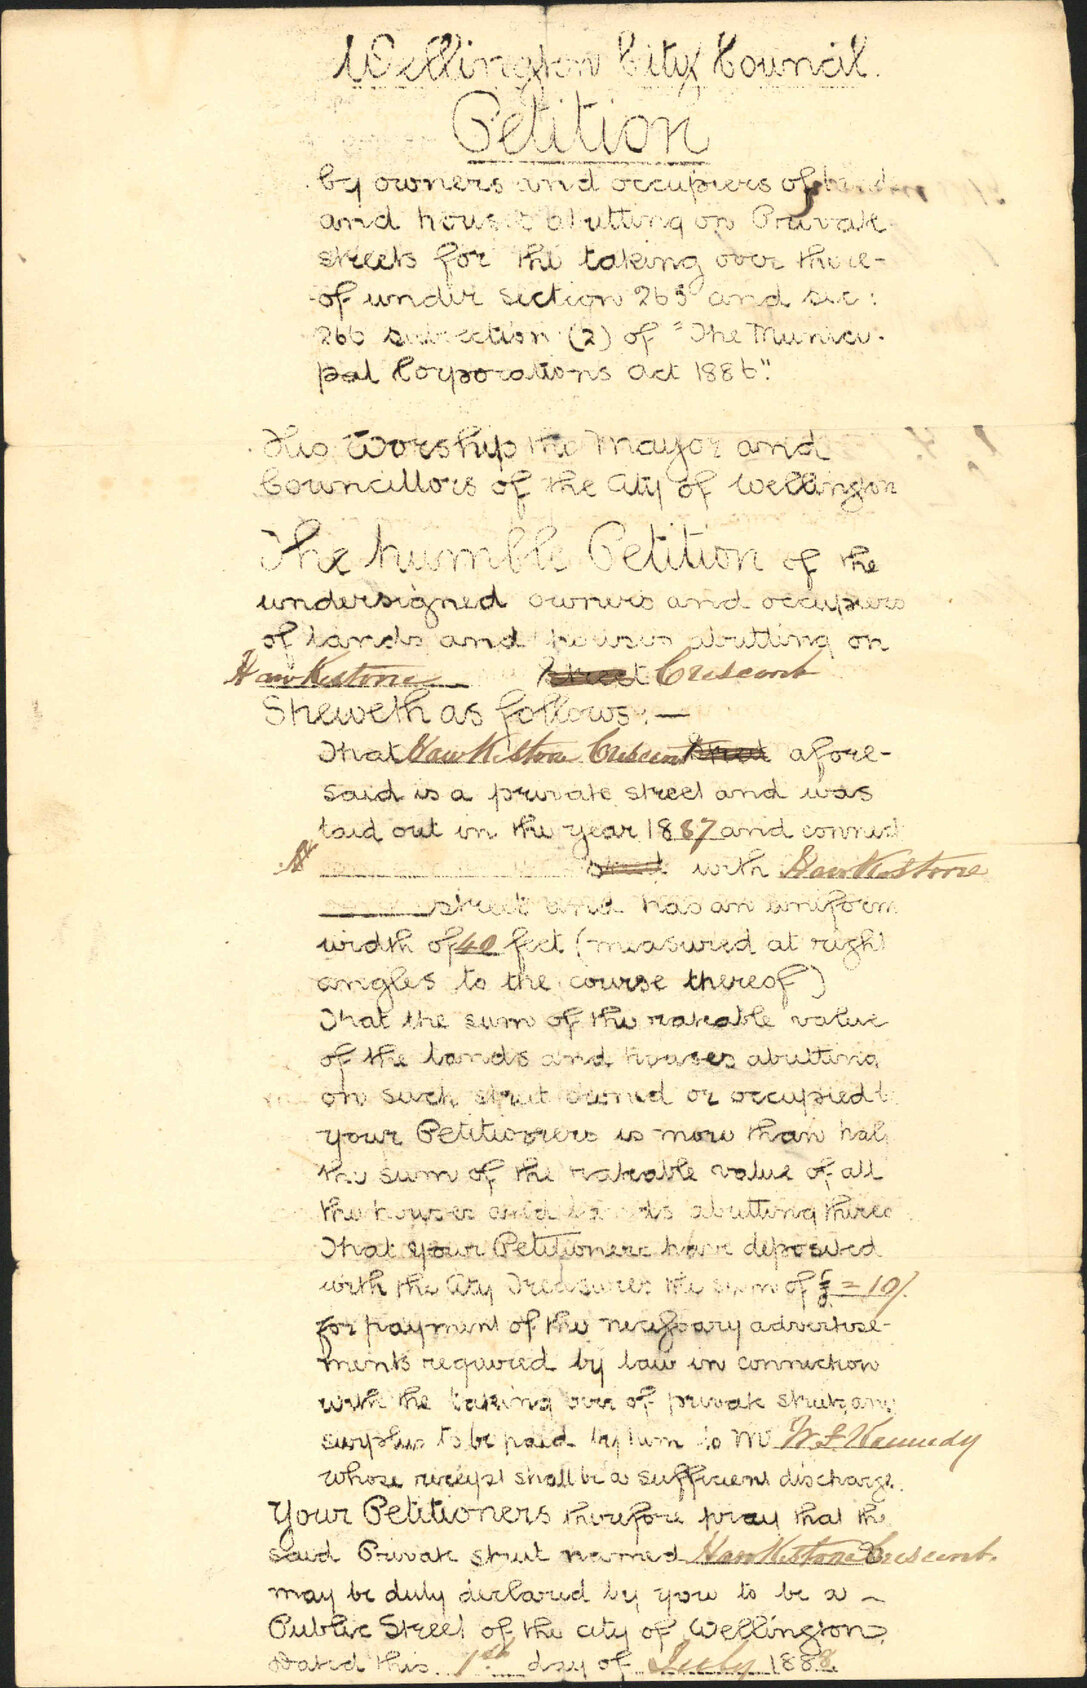 Wellington City Council.
Petition
by owners and occupiers of land
and houses abutting on Private
streets for the taking over there-
of under section 265 and sec:
266 subsection (2) of "The Munici-
pal Corporations Act 1886".
His Worship the Mayor and
Councillors of the City of Wellington
The humble Petition of the
undersigned owners and occupiers
of lands and houses abutting on
Hawkestone Street Crescent
Sheweth as follows:—
That Hawkestone Crescent Street afore-
said is a private street and was
laid out in the year 1887 and connect
Street with Hawkestone
street and has an uniform
width of 40 feet (measured at right
angles to the course thereof)
That the sum of the rateable value
of the lands and houses abutting
on such street owned or occupied b
your Petitioners is more than half
the sum of the rateable value of all
the houses and lands abutting thereo
That your Petitioners have deposited
with the City Treasurer the sum of £ = 10/.
for payment of the necessary advertise-
ments required by law in connection
with the taking over of private streets any
surplus to be paid by him to Mr W F Kennedy
whose receipt shall be a sufficient discharge.
Your Petitioners therefore pray that the
said Private street named Hawkestone Crescent.
may be duly declared by you to be a
Public Street of the City of Wellington.
Dated this 1st day of July 1888.